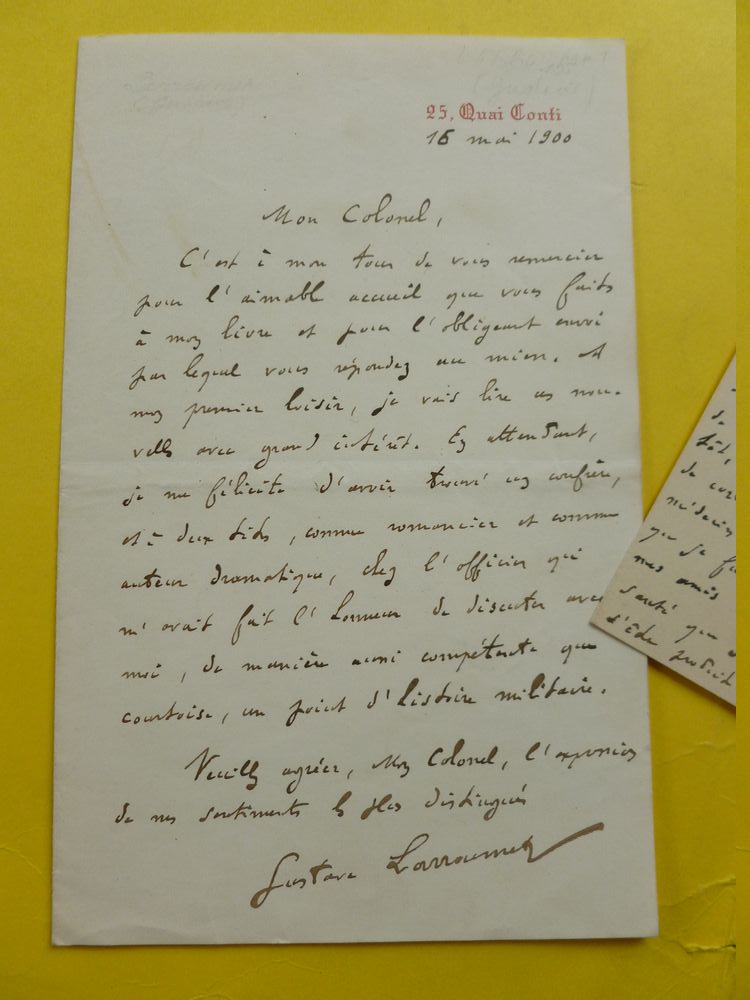 25, Quai Conti
16 mai 1900
Mon Colonel,
C'est à mon tour de vous remercier
pour l'aimable accueil que vous faits
à mon livre et pour l'obligeant envoi
par lequel vous répondez au mien. A
mon premier loisir, je vais lire ces nou-
velles avec grand intérêt. En attendant,
je me félicite d'avoir trouvé un confrère,
et à deux titres, comme romancier et comme
auteur dramatique, chez l'officier qui
m'avait fait l'honneur de discuter avec
moi, de manière aussi compétente que
courtoise, un point d'histoire militaire.
Veuillez agréer, Mon Colonel, l'expression
de mes sentiments les plus distingués
Gustave Larroumet
de
de
médecin
que je
mes amis
santé que
d'être